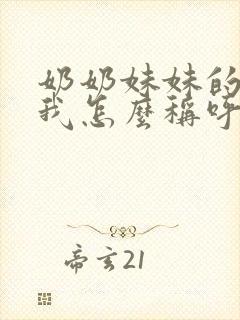 奶奶妹妹的
我怎麼稱呼
帝玄21